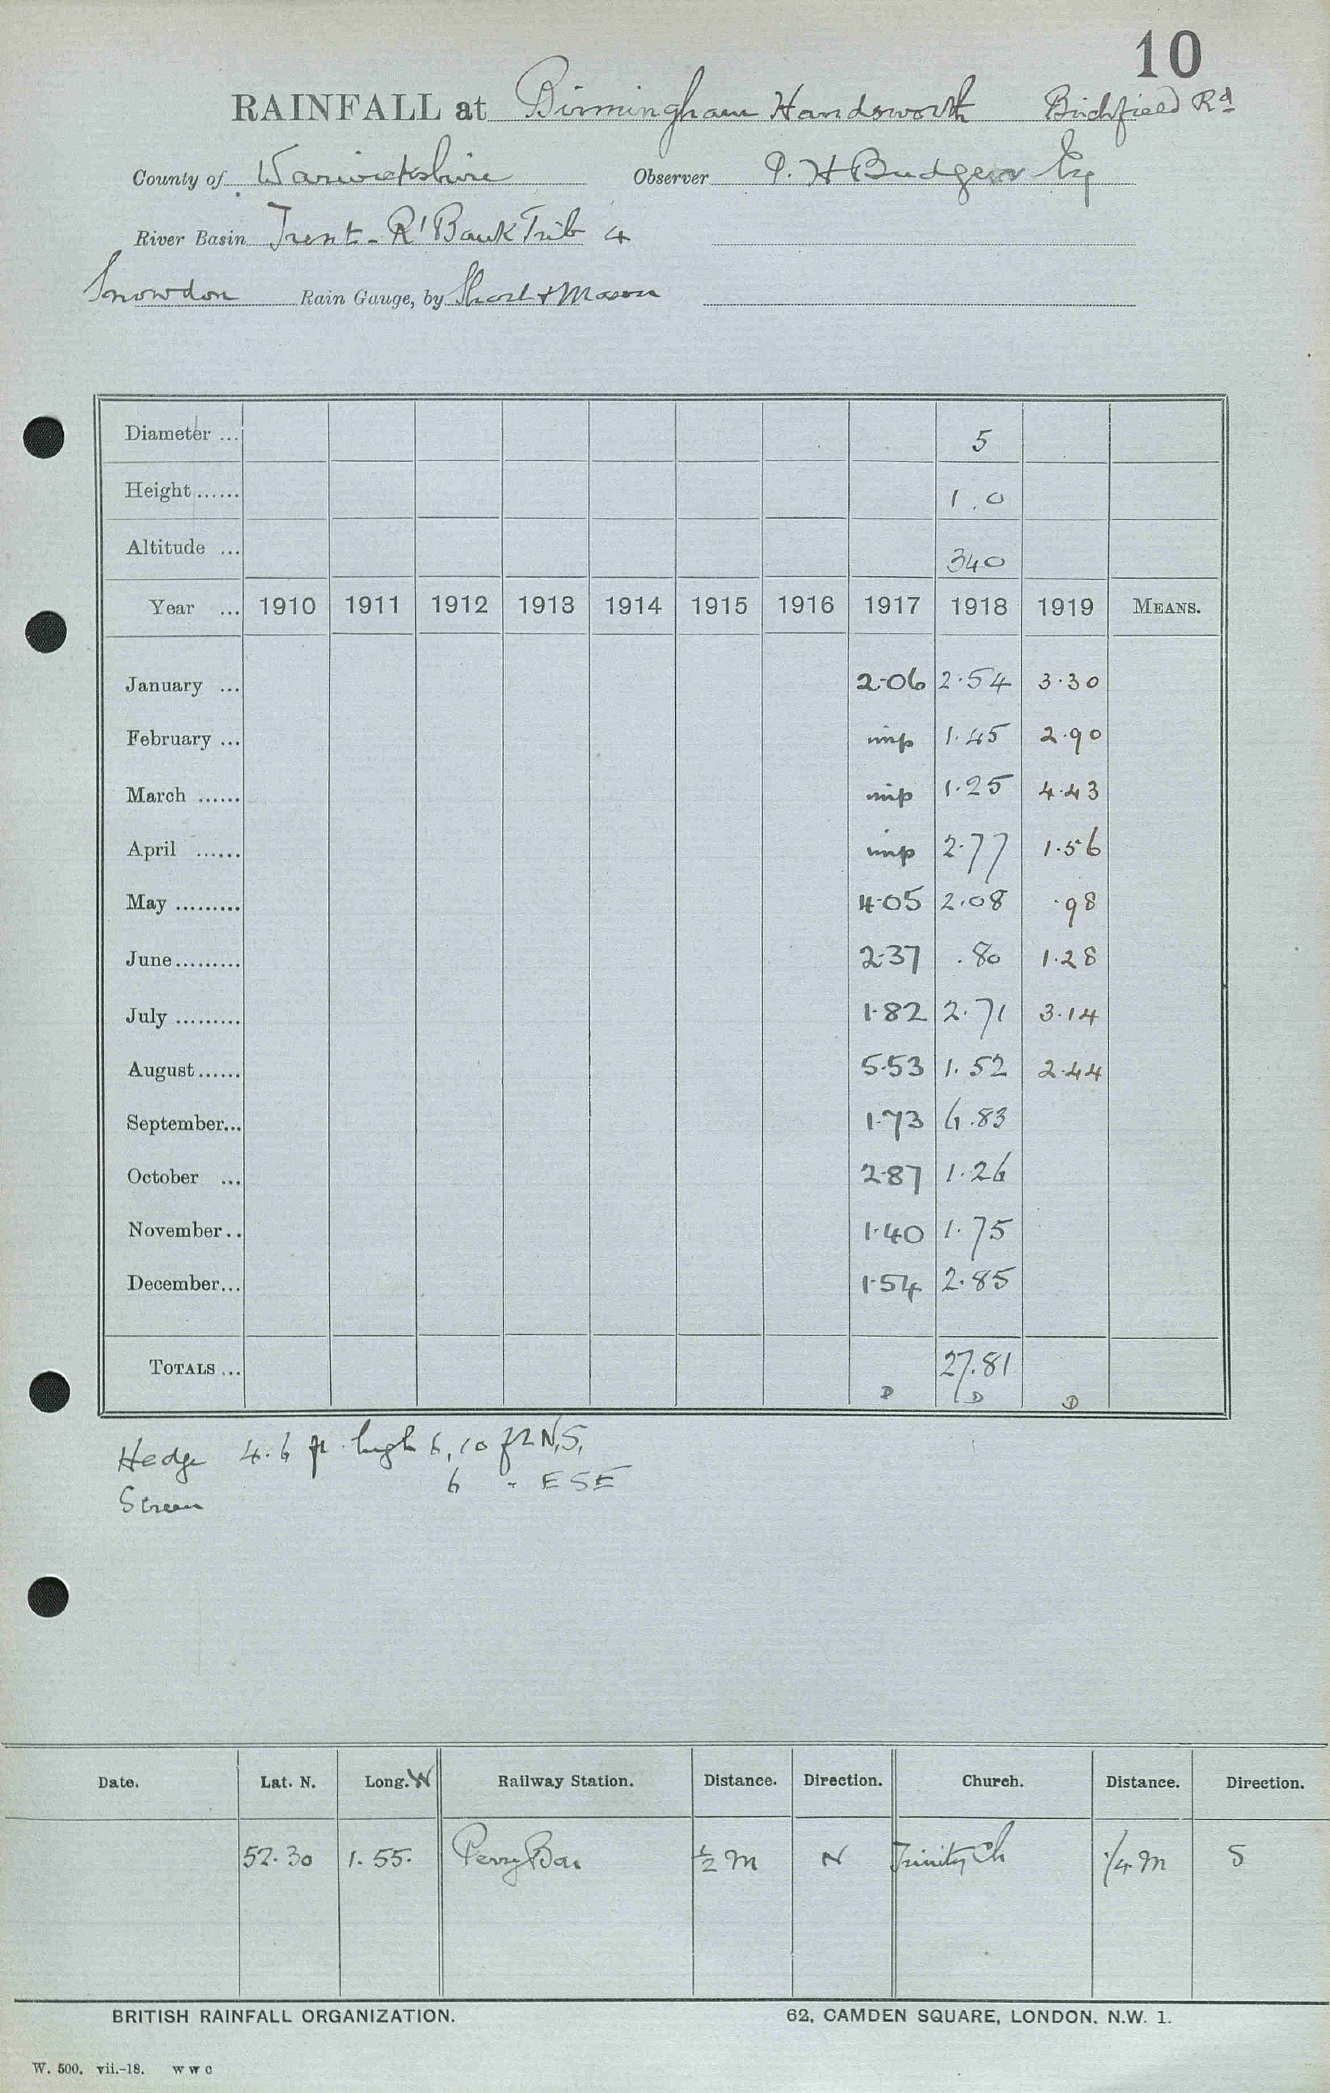 10
RAINFALL at Birmingham Handsworth Birchfield Rd
County of Warwickshire Observer P. H Budgen Esq
River Basin Trent - R' Bank Trib 4
Snowdon Rain Gauge, by Short & Mason
Diameter ... 5
Height ...... 1.0
Altitude ... 340
Year ... 1910 1911 1912 1913 1914 1915 1916 1917 1918 1919 MEANS.
January ... 2.06 2.54 3.30
February ... imp 1.45 2.90
March ...... imp 1.25 4.43
April ...... imp 2.77 1.56
May ......... 4.05 2.08 .98
June......... 2.37 .80 1.28
July ......... 1.82 2.71 3.14
August...... 5.53 1.52 2.44
September... 1.73 6.83
October ... 2.87 1.26
November.. 1.40 1.75
December... 1.54 2.85
TOTALS ... 27.81
D D D
Hedge 4.6 ft high 6, 10 ft N, S,
6 " ESE
Screen
Date. Lat. N. Long. W Railway Station. Distance. Direction. Church. Distance. Direction.
52.30 1.55. Perry Bar ½ m N Trinity Ch ¼ m S
BRITISH RAINFALL ORGANIZATION. 62, CAMDEN SQUARE, LONDON. N.W. 1.
W. 500. vii.-18. w w c